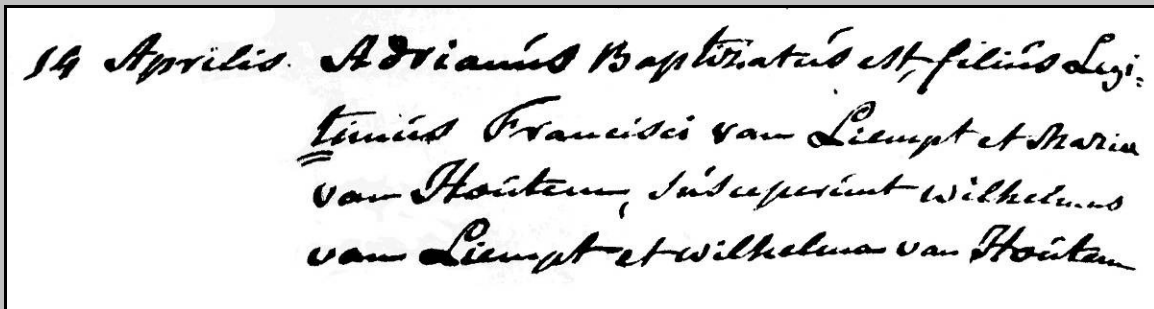 14 Aprilis. Adrianús Baptizatús est, filiús Legi=
timús Francisci van Liempt et Maria
van Hoútem, súsceperúnt Wilhelmus
van Liempt et Wilhelma van Hoútem